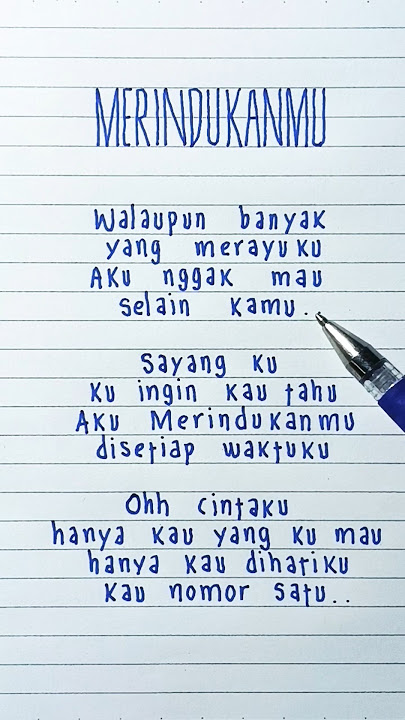 MERINDUKANMU
Walaupun banyak
yang merayuku
Aku nggak mau
selain kamu.
Sayang ku
Ku ingin kau tahu
Aku Merindukanmu
disetiap waktuku
Ohh cintaku
hanya kau yang ku mau
hanya kau dihatiku
Kau nomor satu..